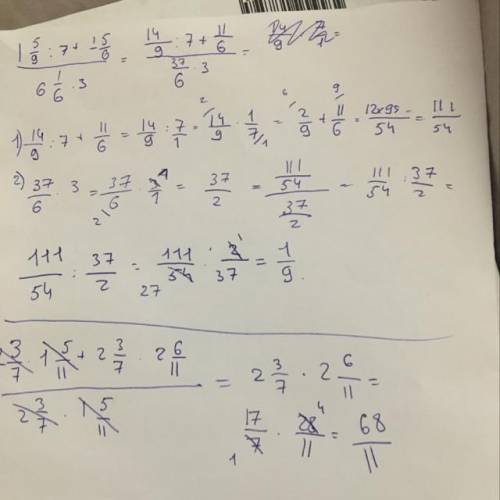 1 5/9 : 7 + 1 5/6 / 6 1/6 · 3 = 14/9 : 7 + 11/6 / 37/6 · 3 =
1) 14/9 : 7 + 11/6 = 14/9 : 7/1 = 14/9 · 1/7 = 2/9 + 11/6 = 12+99/54 = 111/54
2) 37/6 · 3 = 37/6 · 3/1 = 37/2 = 111/54 / 37/2 = 111/54 : 37/2 =
111/54 : 37/2 = 111/54 · 2/37 = 1/9.
3/7 · 1 5/11 + 2 3/7 · 2 6/11 / 2 3/7 · 1 5/11 = 2 3/7 · 2 6/11 =
17/7 · 28/11 = 68/11